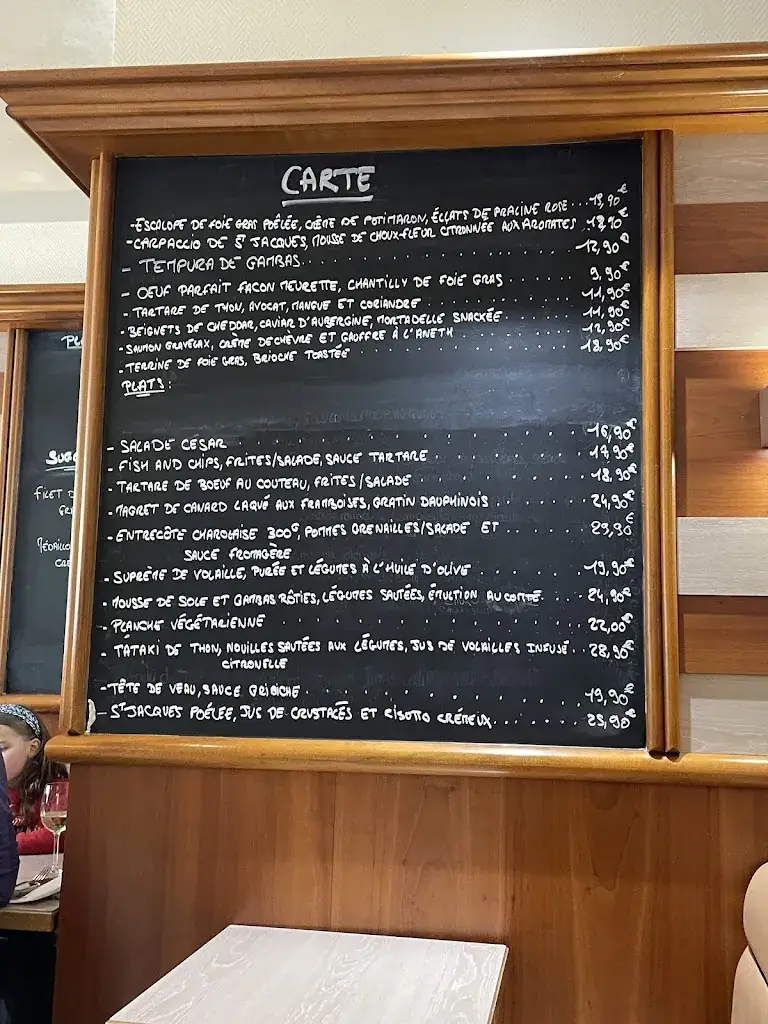 CARTE
-ESCALOPE DE FOIE GRAS POÊLÉE, CRÈME DE POTIMARON, ÉCLATS DE PRALINE ROSE ... 19,90€
-CARPACCIO DE ST JACQUES, MOUSSE DE CHOUX-FLEUR CITRONNÉE AUX AROMATES
- TEMPURA DE GAMBAS ... 12,90€
- OEUF PARFAIT FACON MEURETTE, CHANTILLY DE FOIE GRAS ... 9,90€
- TARTARE DE THON, AVOCAT, MANGUE ET CORIANDRE ... 11,90€
- BEIGNETS DE CHEDDAR, CAVIAR D'AUBERGINE, MORTADELLE SNACKÉE ... 11,90€
- SAUMON GRAVELAX, CRÈME DE CHÈVRE ET GAUFFRE À L'ANETH ... 12,90€
- TERRINE DE FOIE GRAS, BRIOCHE TOASTÉE ... 18,90€
PLATS:
- SALADE CÉSAR ... 16,90€
- FISH AND CHIPS, FRITES/SALADE, SAUCE TARTARE ... 17,90€
- TARTARE DE BOEUF AU COUTEAU, FRITES/SALADE ... 18,90€
- MAGRET DE CANARD LAQUÉ AUX FRAMBOISES, GRATIN DAUPHINOIS ... 24,90€
- ENTRECÔTE CHAROLAISE 300G, POMMES GRENAILLES/SALADE ET
SAUCE FROMAGÈRE ... 25,90€
- SUPRÈME DE VOLAILLE, PURÉE ET LÉGUMES À L'HUILE D'OLIVE ... 19,90€
- MOUSSE DE SOLE ET GAMBAS RÔTIES, LÉGUMES SAUTÉES, ÉMULTION AU COMTÉ ... 24,90€
- PLANCHE VÉGÉTARIENNE ... 22,00€
- TATAKI DE THON, NOUILLES SAUTÉES AUX LÉGUMES, JUS DE VOLAILLES INFUSÉ ... 28,90€
CITRONELLE
- TÊTE DE VEAU, SAUCE GRIBICHE ... 19,90€
- ST JACQUES POÊLÉE, JUS DE CRUSTACÉS ET RISOTTO CRÉMEUX ... 25,90€
PL
FILET D
MÉDAILLO